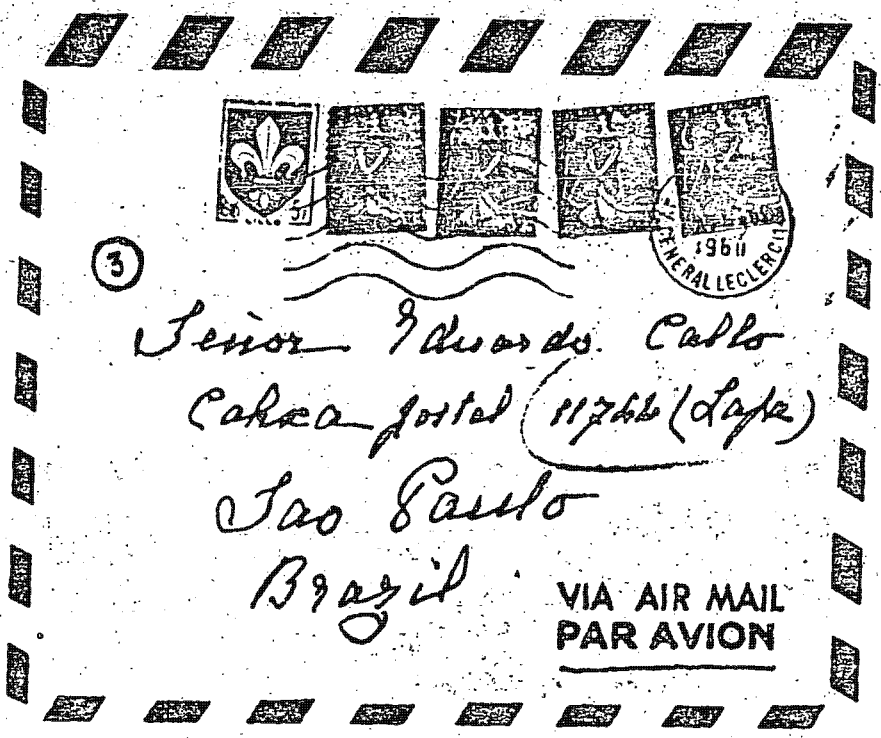 1960
GENERAL LECLERC
3
Señor Eduardo. Callo
Caixa postal 11744 (Lapa)
Sao Paulo
Brazil
VIA AIR MAIL
PAR AVION